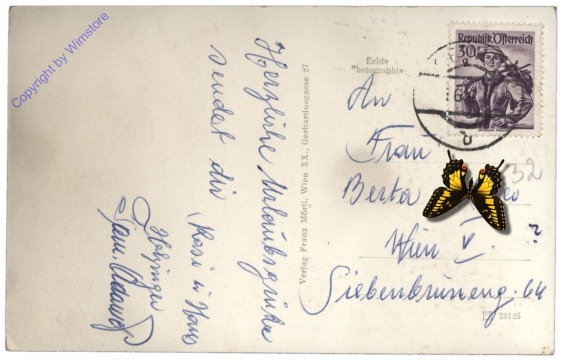 Copyright by Wimstore
Herzliche Urlaubsgrüße
sendet dir
Rosi u Hans
Verlag Franz Mörtl, Wien XX., Gerhardusgasse 27
Echte
Photographie
Republik Österreich
30
g
An
Frau
Berta
32
Wien V.
?
Siebenbrunneng. 64
78125